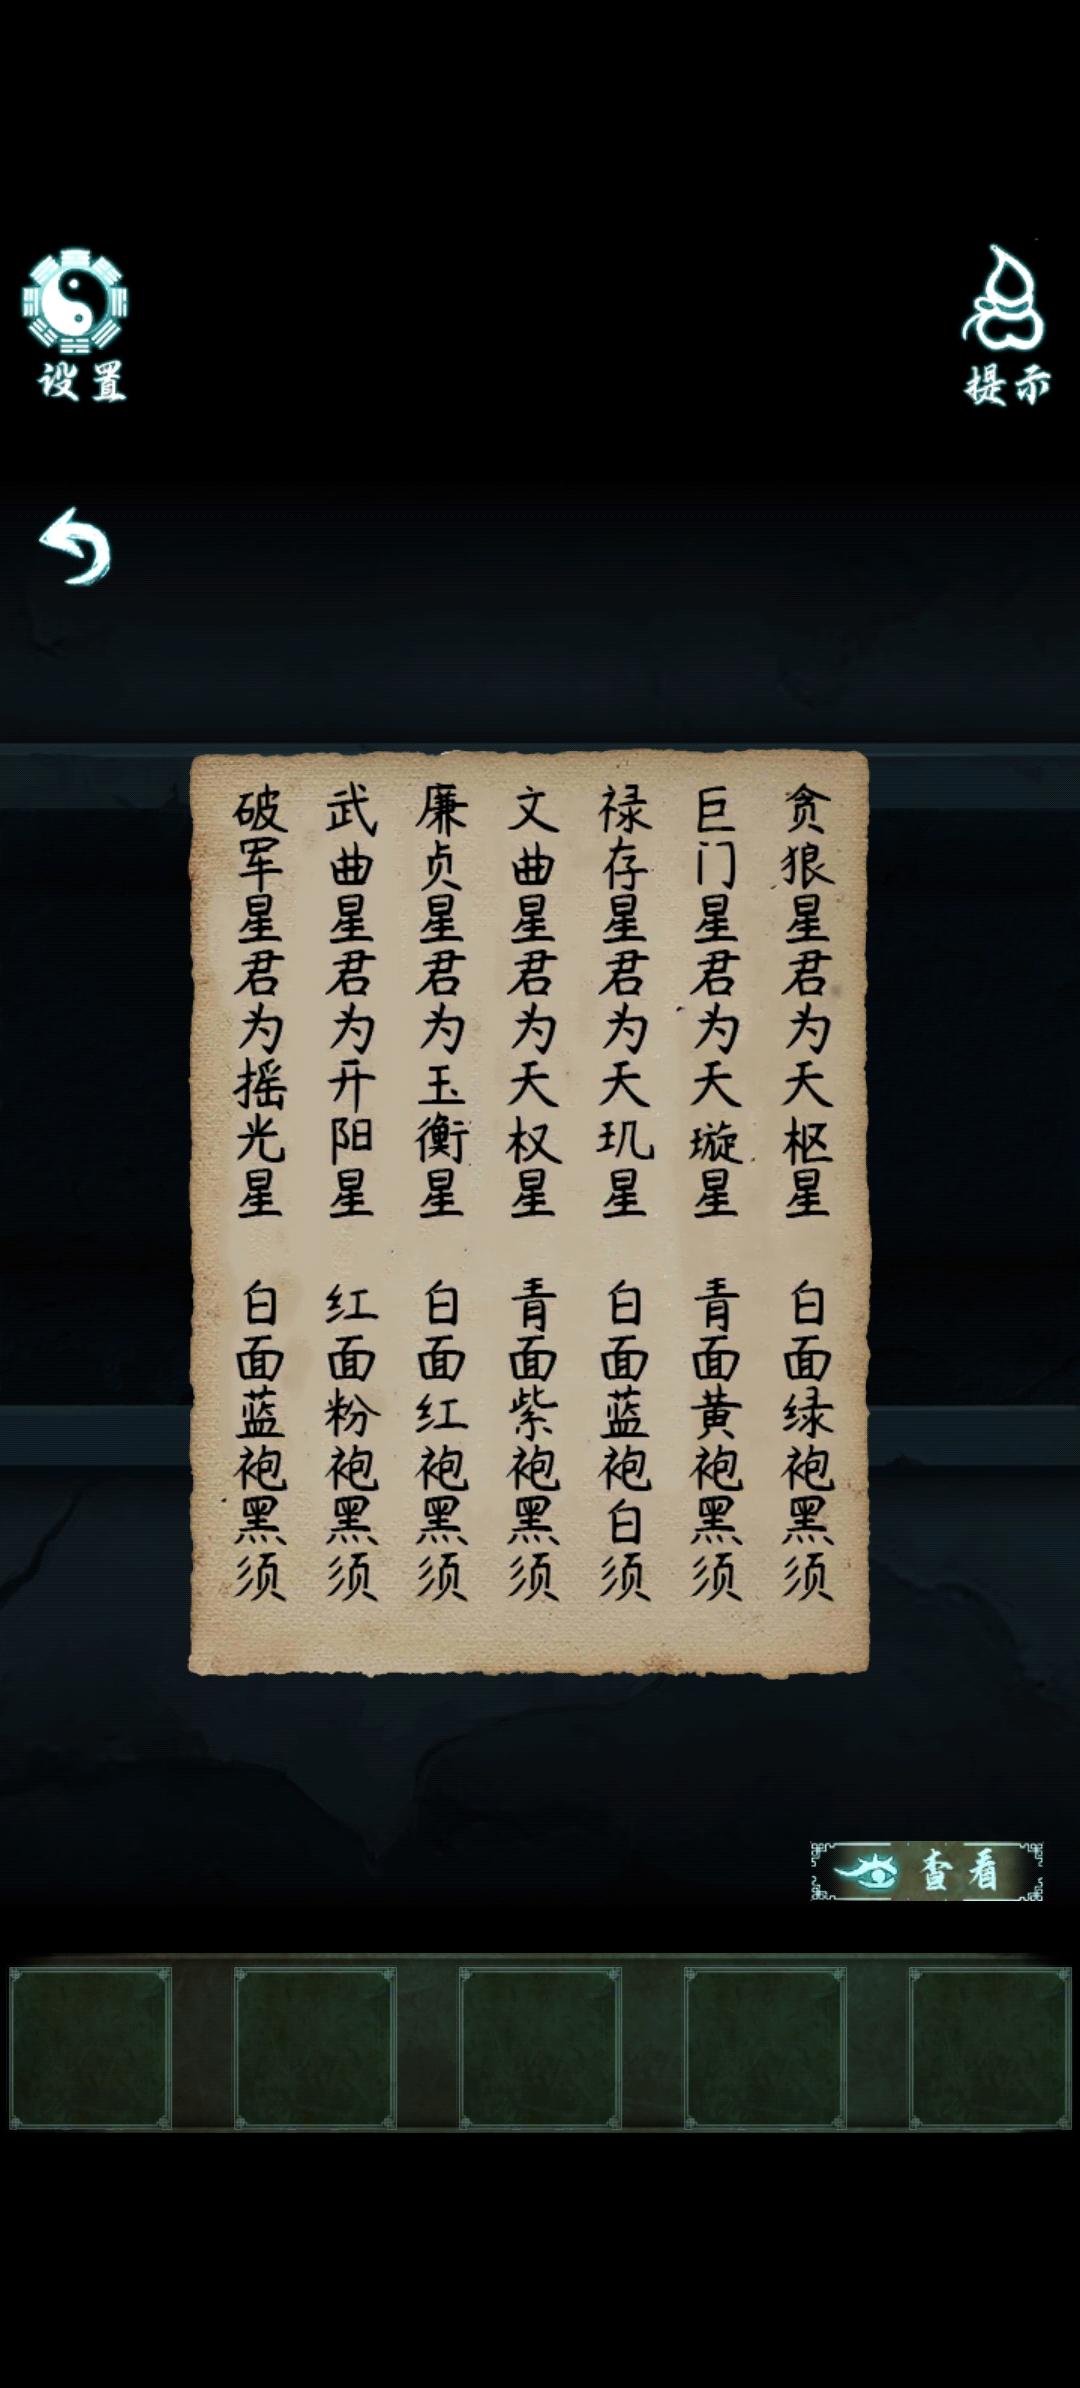 设置
提示
贪狼星君为天枢星 白面绿袍黑须
巨门星君为天璇星 青面黄袍黑须
禄存星君为天玑星 白面蓝袍白须
文曲星君为天权星 青面紫袍黑须
廉贞星君为玉衡星 白面红袍黑须
武曲星君为开阳星 红面粉袍黑须
破军星君为摇光星 白面蓝袍黑须
查看